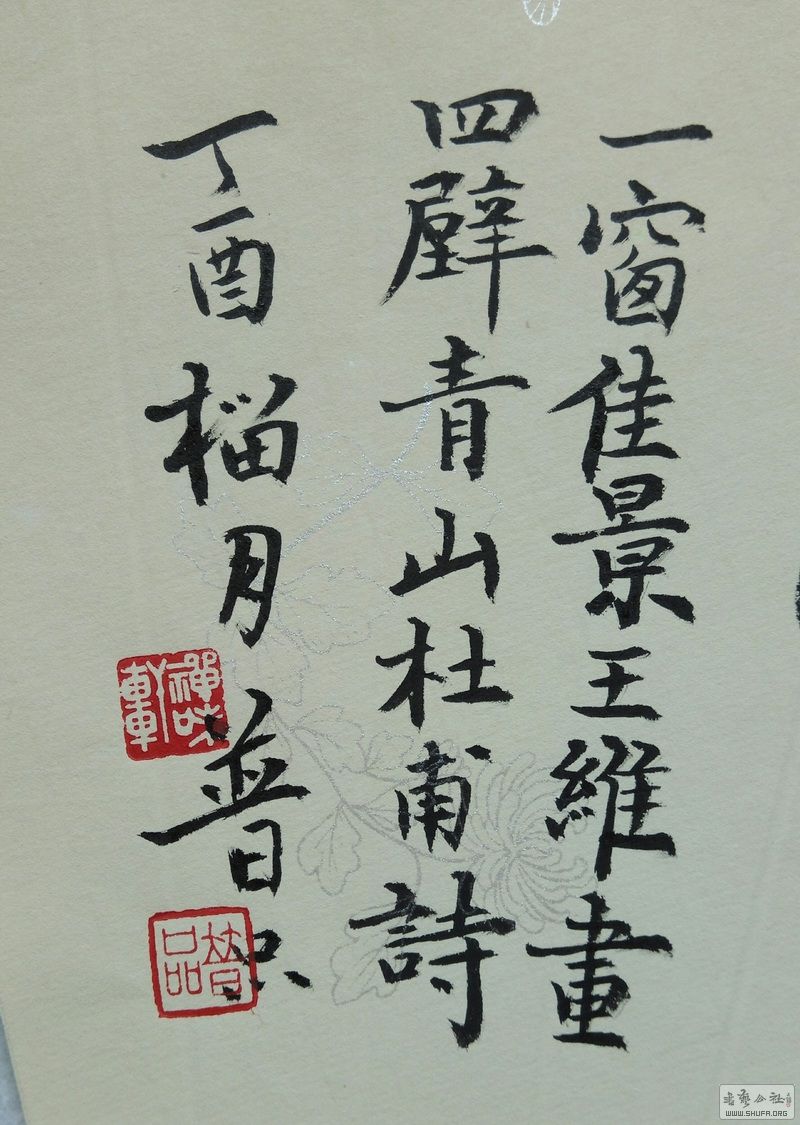 一窗佳景王維畫
四壁青山杜甫詩
丁酉榴月普
禪味軒
普品
書藝公社
WWW.SHUFA.ORG